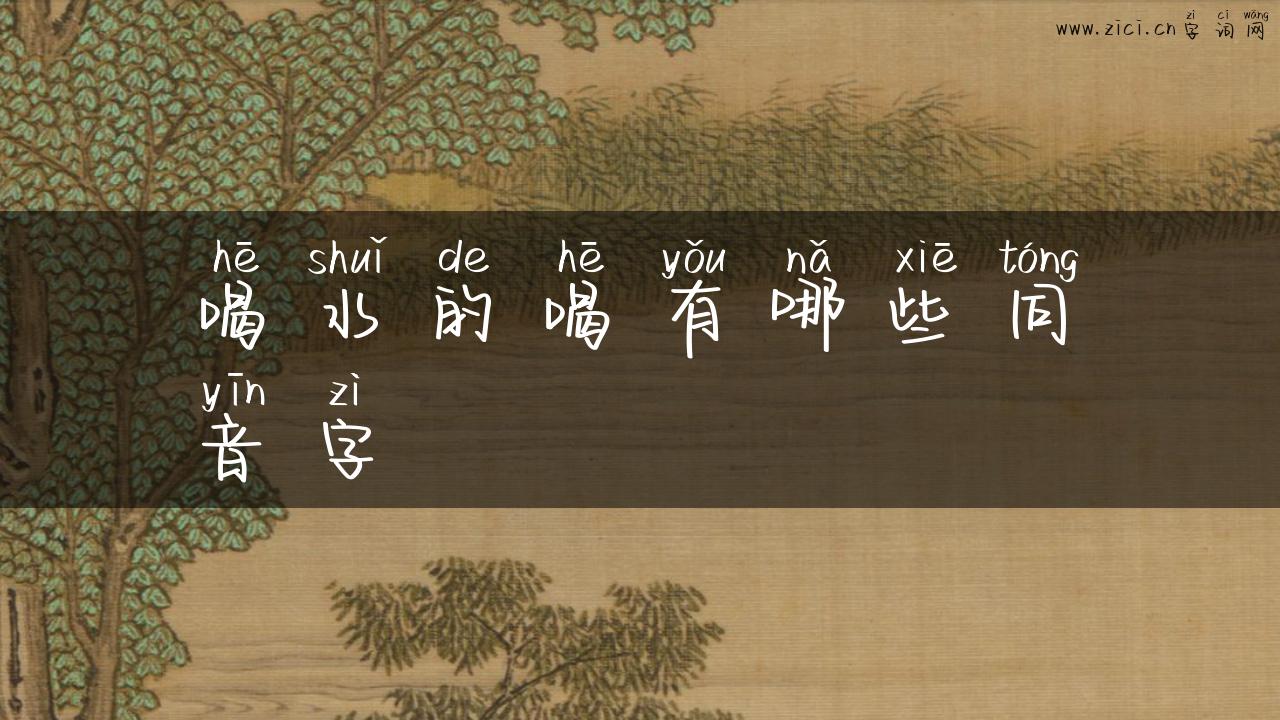 zì cí wǎng
www.zici.cn 字 词 网
hē shuǐ de hē yǒu nǎ xiē tóng
喝 水 的 喝 有 哪 些 同
yīn zì
音 字